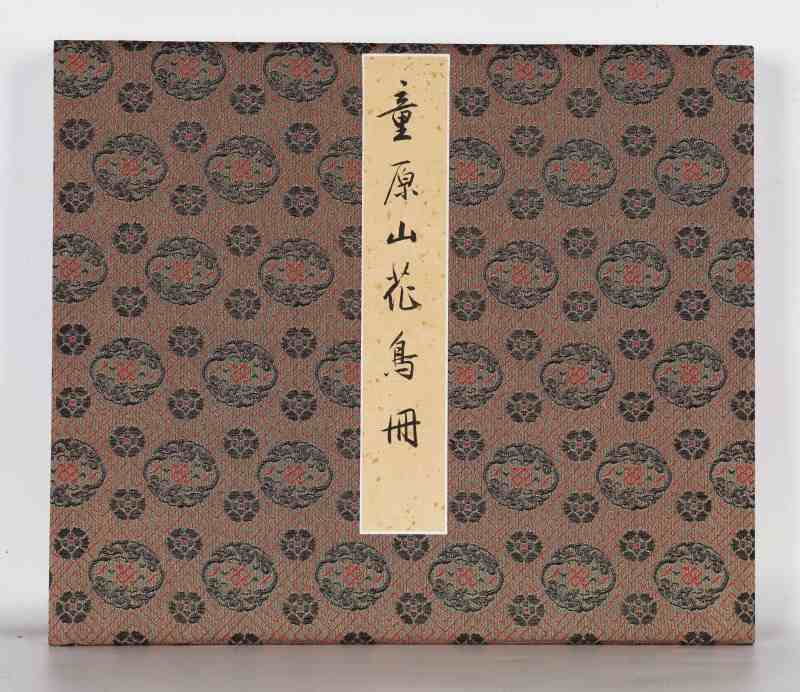 童原山花鳥冊